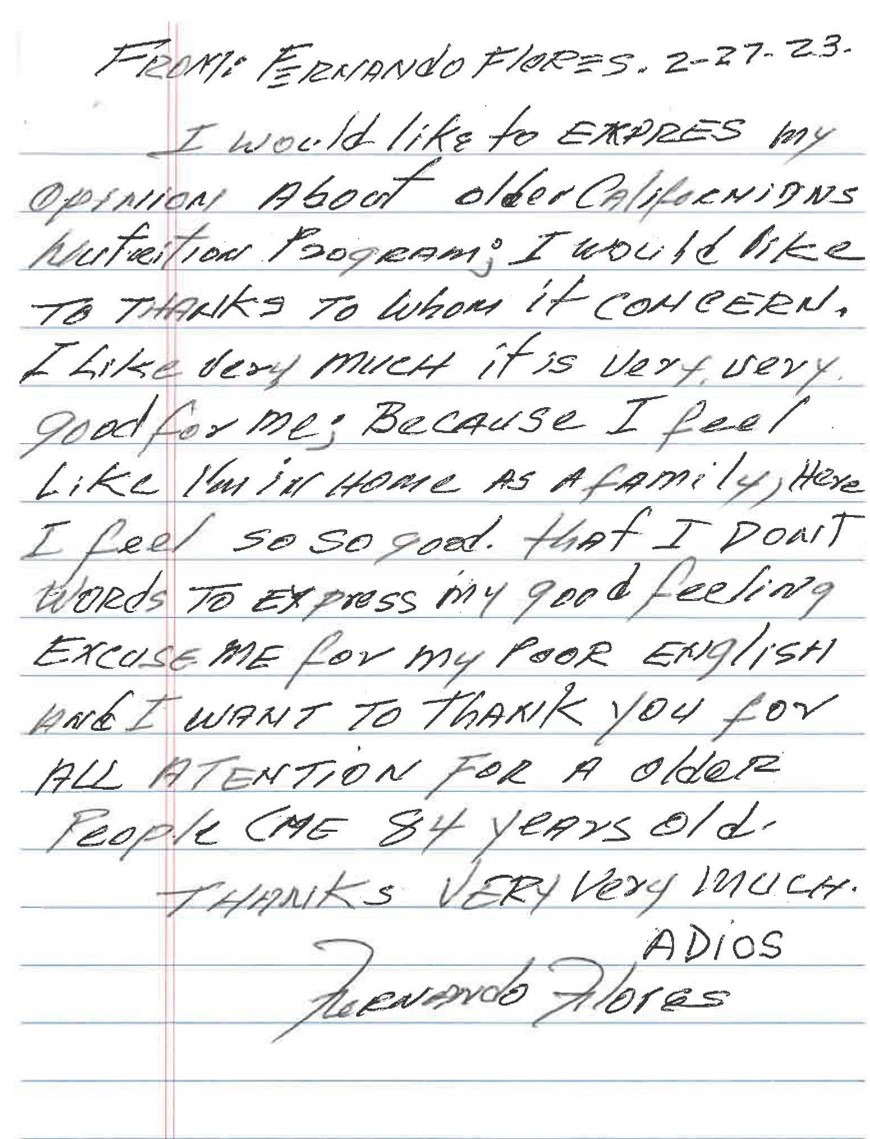 FROM: FERNANDO FLORES. 2-27-23.
I would like to EXPRES my
OPINION About older CALIFORNIANS
Nutrition PROGRAM; I would like
TO THANKS TO Whom it CONCERN.
I Like very much it is very, very.
good for me; BECAUSE I feel
LIKE I'm in HOME AS A family, Here
I feel so so good. that I DON'T
WORds TO EXpress my good feeling
EXCUSE ME for my POOR ENglISH
and I WANT TO THANK YOU for
ALL ATENTION FOR A oldeR
People (ME 84 years old.
THANKS VERY Very MUCH.
ADIOS
Fernando Flores